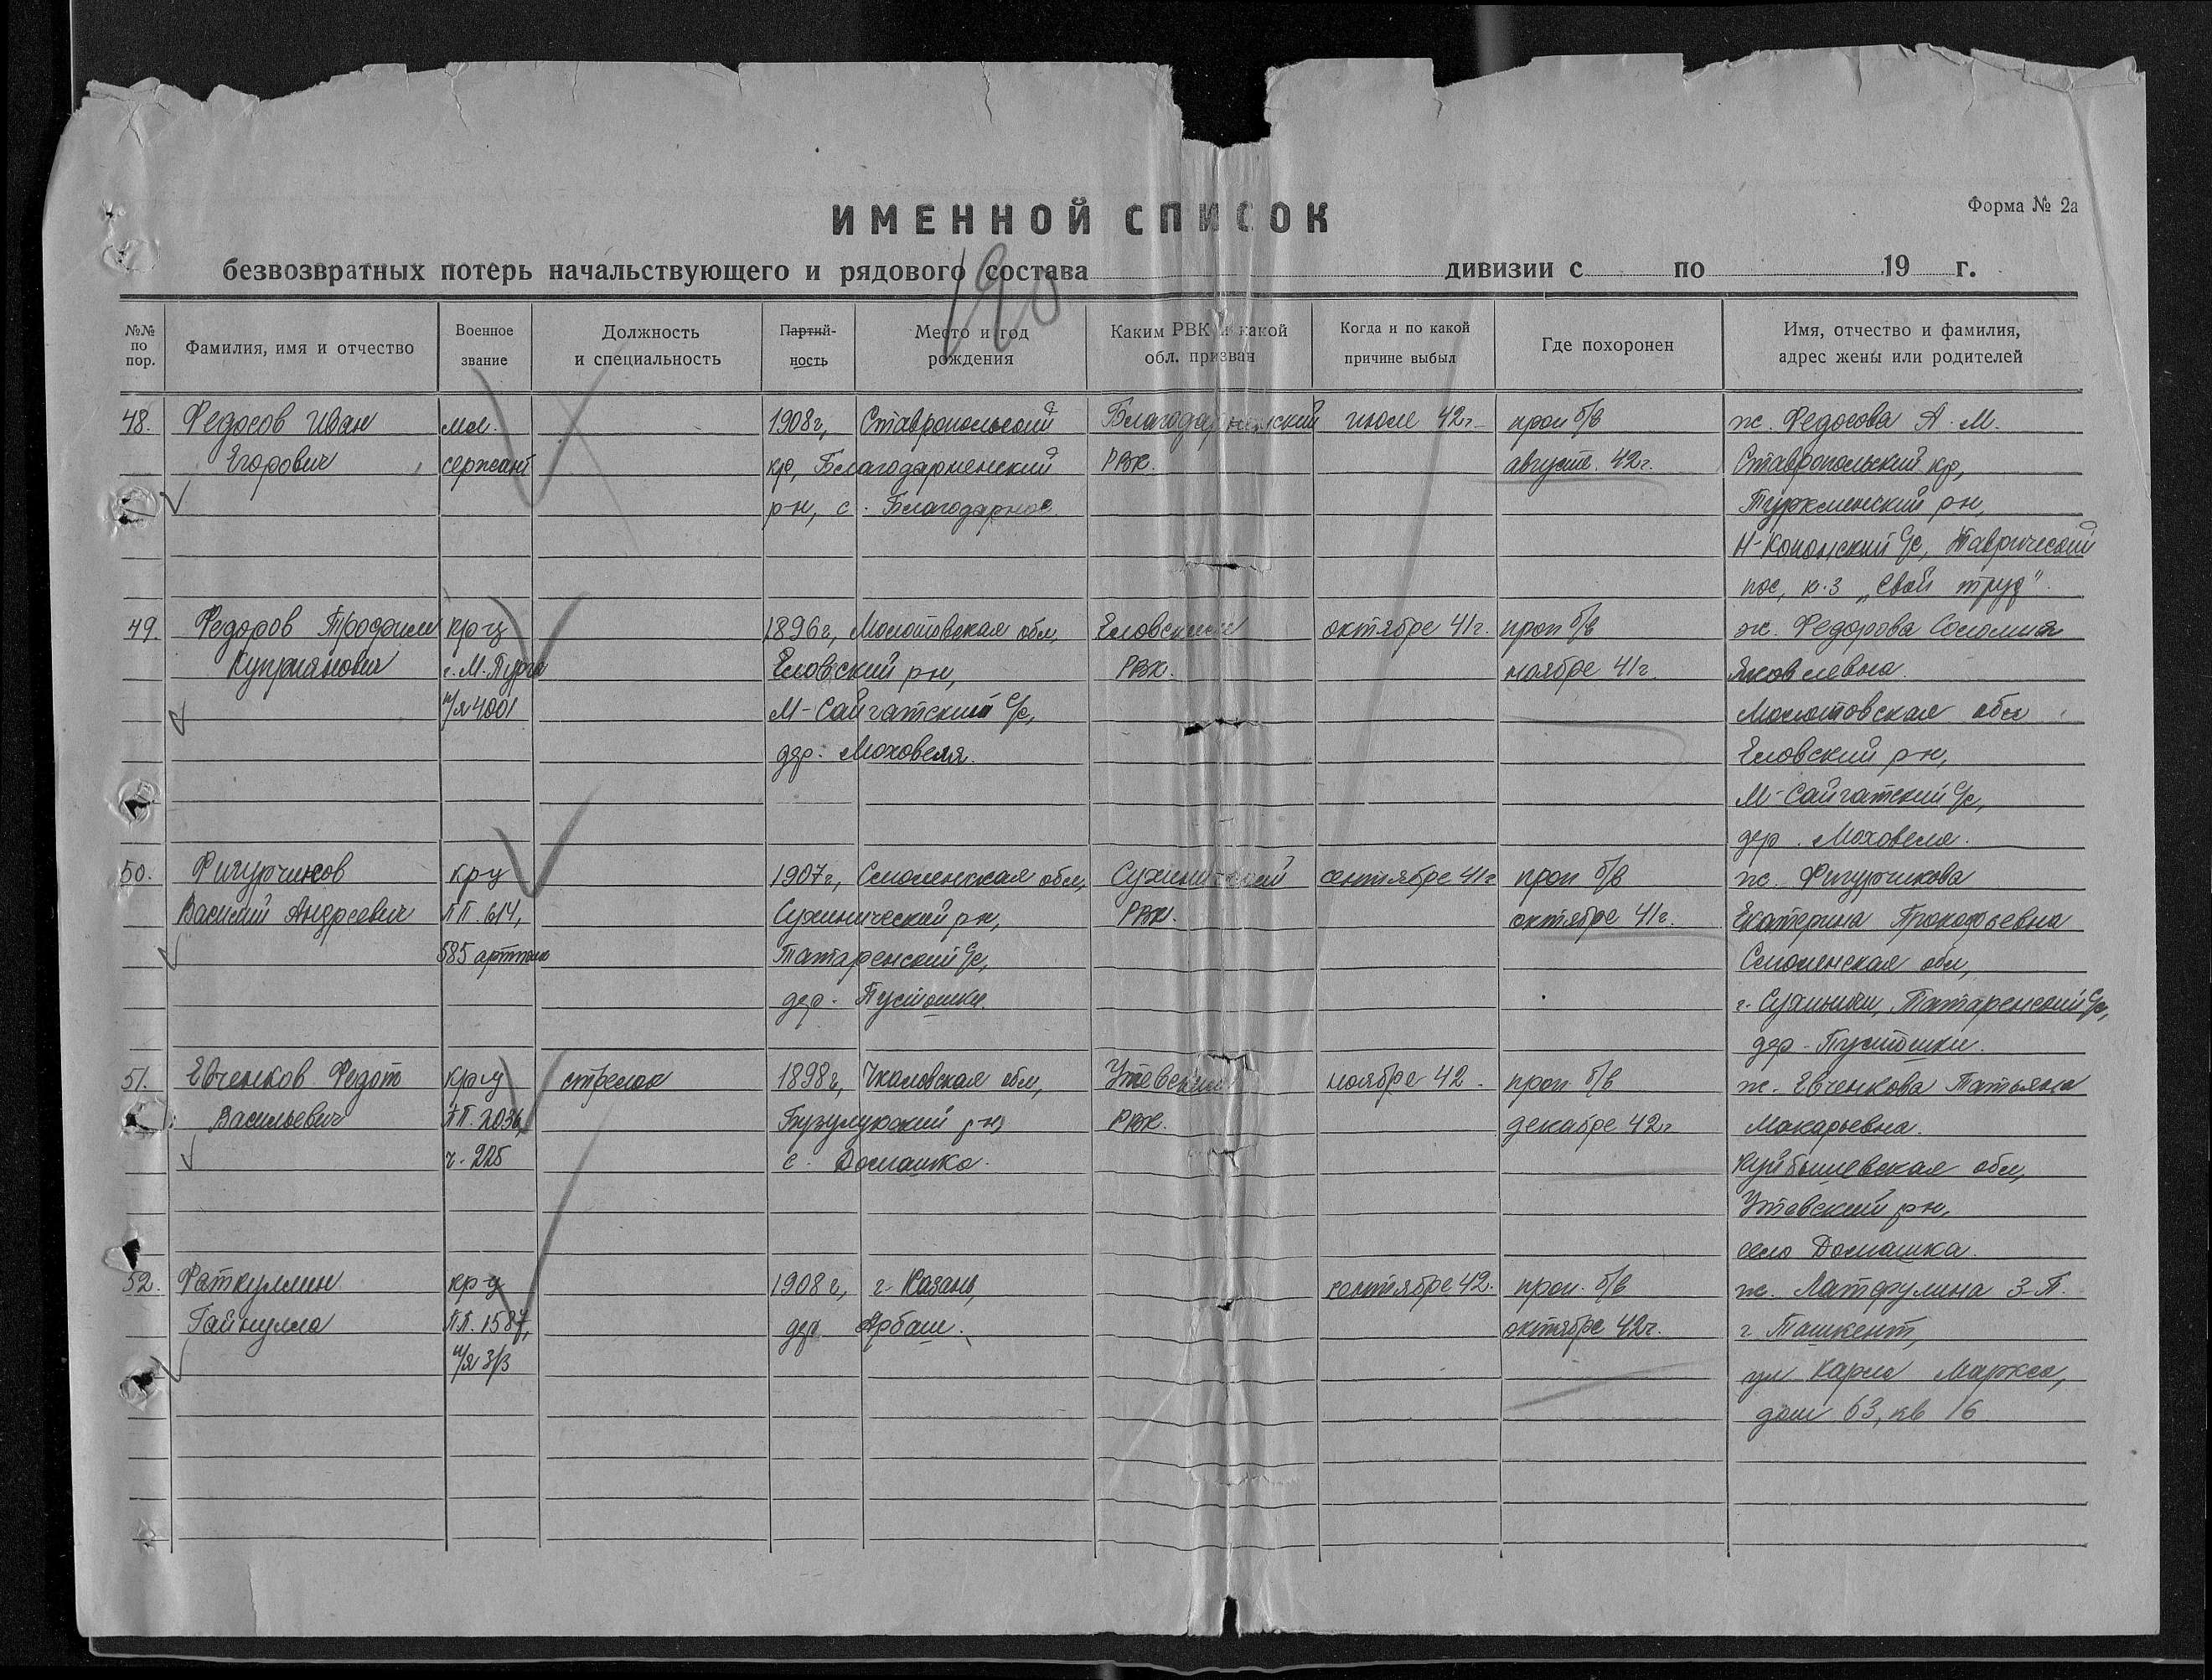 ИМЕННОЙ СПИСОК
Форма № 2а
безвозвратных потерь начальствующего и рядового состава дивизии с по 19 г.
190
№№ по пор.
Фамилия, имя и отчество
Военное звание
Должность и специальность
Партий-ность
Место и год рождения
Каким РВК и какой обл. призван
Когда и по какой причине выбыл
Где похоронен
Имя, отчество и фамилия, адрес жены или родителей
48. Федосов Иван мл. 1908г, Ставропольский Благодарненский июле 42г проп б/в ж. Федосова А. М.
Егорович сержант кр, Благодарненский РВК. августе. 42г. Ставропольский кр,
рн, с. Благодарное Туркменский рн,
Н-Кононский с/с, Таврический
пос, к-з „Свой труд"
49. Федоров Трофим кр-ц 1896г, Молотовская обл, Еловским октябре 41г. проп б/в ж. Федорова Соломия
Куприанович с. М. Пурга Еловский рн, РВК. ноябре 41г. Яковлевна.
п/я 4001 М-Сайгатский с/с, Молотовская обл
дер. Моховеля. Еловский рн,
М-Сайгатский с/с,
дер. Моховеля.
50. Фигурчиков кр-ц 1907г, Смоленская обл, Сухинический сентябре 41г проп б/в ж. Фигурчикова
Василий Андреевич ПП. 614, Сухинический рн, РВК. октябре 41г. Екатерина Прокофьевна
585 артполк Татаренский с/с, Смоленская обл,
дер. Пустошки. г. Сухиничи, Татаренский с/с,
дер. Пустошки.
51. Евченков Федот кр-ц стрелок 1898г, Чкаловская обл, Утевским ноябре 42. проп б/в ж. Евченкова Татьяна
Васильевич ПП. 2036, Бузулукский рн, РВК. декабре 42г Макарьевна.
ч. 225 с. Домашка. Куйбышевская обл,
Утевский рн,
село Домашка.
52. Фаткуллин кр-ц 1908г, г. Казань, сентябре 42. проп. б/в ж. Латфулина З. П.
Гайнулла ПП. 1587, дер. Арбаш. октябре 42г. г Ташкент,
п/я 3/3 ул Карла Маркса,
дом 63, кв 16